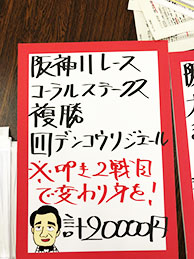 阪神11レース
コーラルステークス
複勝
⑪デンコウリジエール
※叩き2戦目
で変わり身を!
計20000円